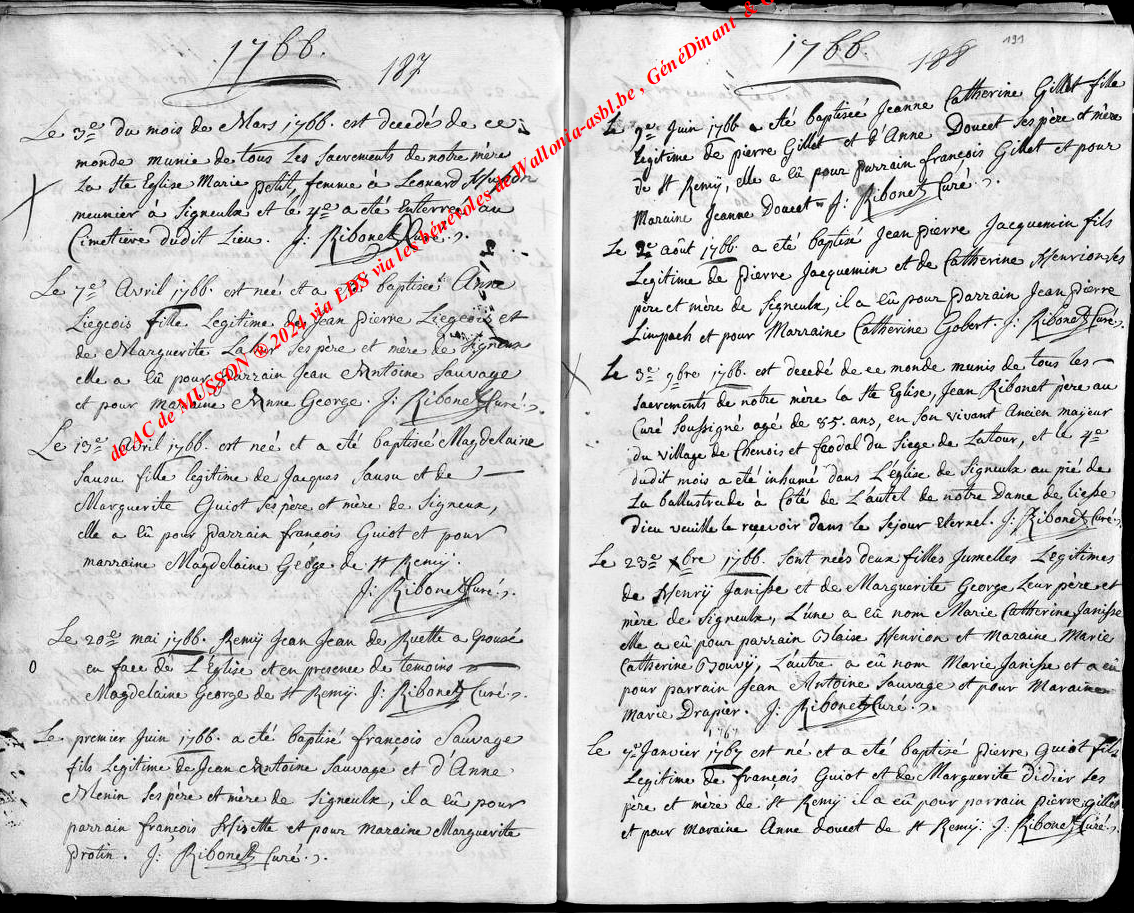 1766.
187
Le 3e du mois de Mars 1766. est decedée de ce
monde munie de tous Les Sacrements de notre mère
La Ste Eglise Marie petit, femme à Leonard
meunier à Signeulx et le 4e a été Enterrée au
Cimetiere dudit Lieu. J: Ribonet Curé.
Le 7e Avril 1766. est née et a été baptiseé Anne
Liegeois fille Legitime de Jean pierre Liegeois et
de Marguerite ses père et mère de Signeux
elle a eû pour parrain Jean Antoine Sauvage
et pour marraine Anne George. J: Ribonet Curé.
Le 13e Avril 1766. est neé et a été baptiseé Magdelaine
Sausu fille legitime de Jacques Sausu et de
Marguerite Guiot ses père et mère de Signeux,
elle a eû pour parrain francois Guiot et pour
marraine Magdelaine George de St Remij.
J: Ribonet Curé.
Le 20e mai 1766. Remij Jean Jean de Ruette a Epousé
en face de L'Eglise et en presence de temoins
Magdelaine George de St Remij. J: Ribonet Curé.
O
Le premier Juin 1766. a été baptisé francois Sauvage
fils Legitime de Jean Antoine Sauvage et d'Anne
Menin ses père et mère de Signeulx, il a eû pour
parrain françois Hizette et pour maraine Marguerite
protin. J: Ribonet Curé.
1766.
188
191
Le 9e Juin 1766 a été baptiseé Jeanne Catherine Gillet fille
legitime de pierre Gillet et d'Anne Doucet ses père et mère
de St Remij, elle a eû pour parrain françois Gillet et pour
Maraine Jeanne Doucet J: Ribonet Curé.
Le 2e août 1766. a été baptisé Jean pierre Jacquemin fils
Legitime de pierre Jacquemin et de Catherine Henrion ses
père et mère de Signeulx, il a eû pour parrain Jean pierre
Limpach et pour Marraine Catherine Gobert. J: Ribonet Curé.
Le 3e 9bre 1766. est decedé de ce monde munis de tous les
sacrements de notre mère la Ste Eglise, Jean Ribonet pere au
Curé Soussigné agé de 85. ans, en son vivant Ancien majeur
du village de Chenois et feodal du Siege de Latour, et le 4e
dudit mois a été inhumé dans L'Eglise de Signeulx au pié de
La ballustrade à Côté de L'autel de notre Dame de liesse
dieu veuille le reçevoir dans le Sejour eternel. J: Ribonet Curé.
Le 23e xbre 1766. sont neés deux filles Jumelles Legitimes
de Henrij Janisse et de Marguerite George Leur père et
mère de Signeulx, L'une a eû nom Marie Catherine Janisse
elle a eû pour parrain Blaise Henrion et Maraine Marie
Catherine Bouvij, L'autre a eû nom Marie Janisse et a eû
pour parrain Jean Antoine Sauvage et pour Maraine
Marie Drapier. J: Ribonet Curé.
1767
Le 7e Janvier 1767 est né et a été baptisé pierre Guiot fils
Legitime de françois Guiot et de Marguerite Didier ses
père et mère de St Remij il a eû pour parrain pierre Gillet
et pour Maraine Anne doucet de St Remij. J: Ribonet Curé.
de AC de MUSSON ® 2024 via LDS via les bénévoles de Wallonia-asbl.be , GénéDinant &